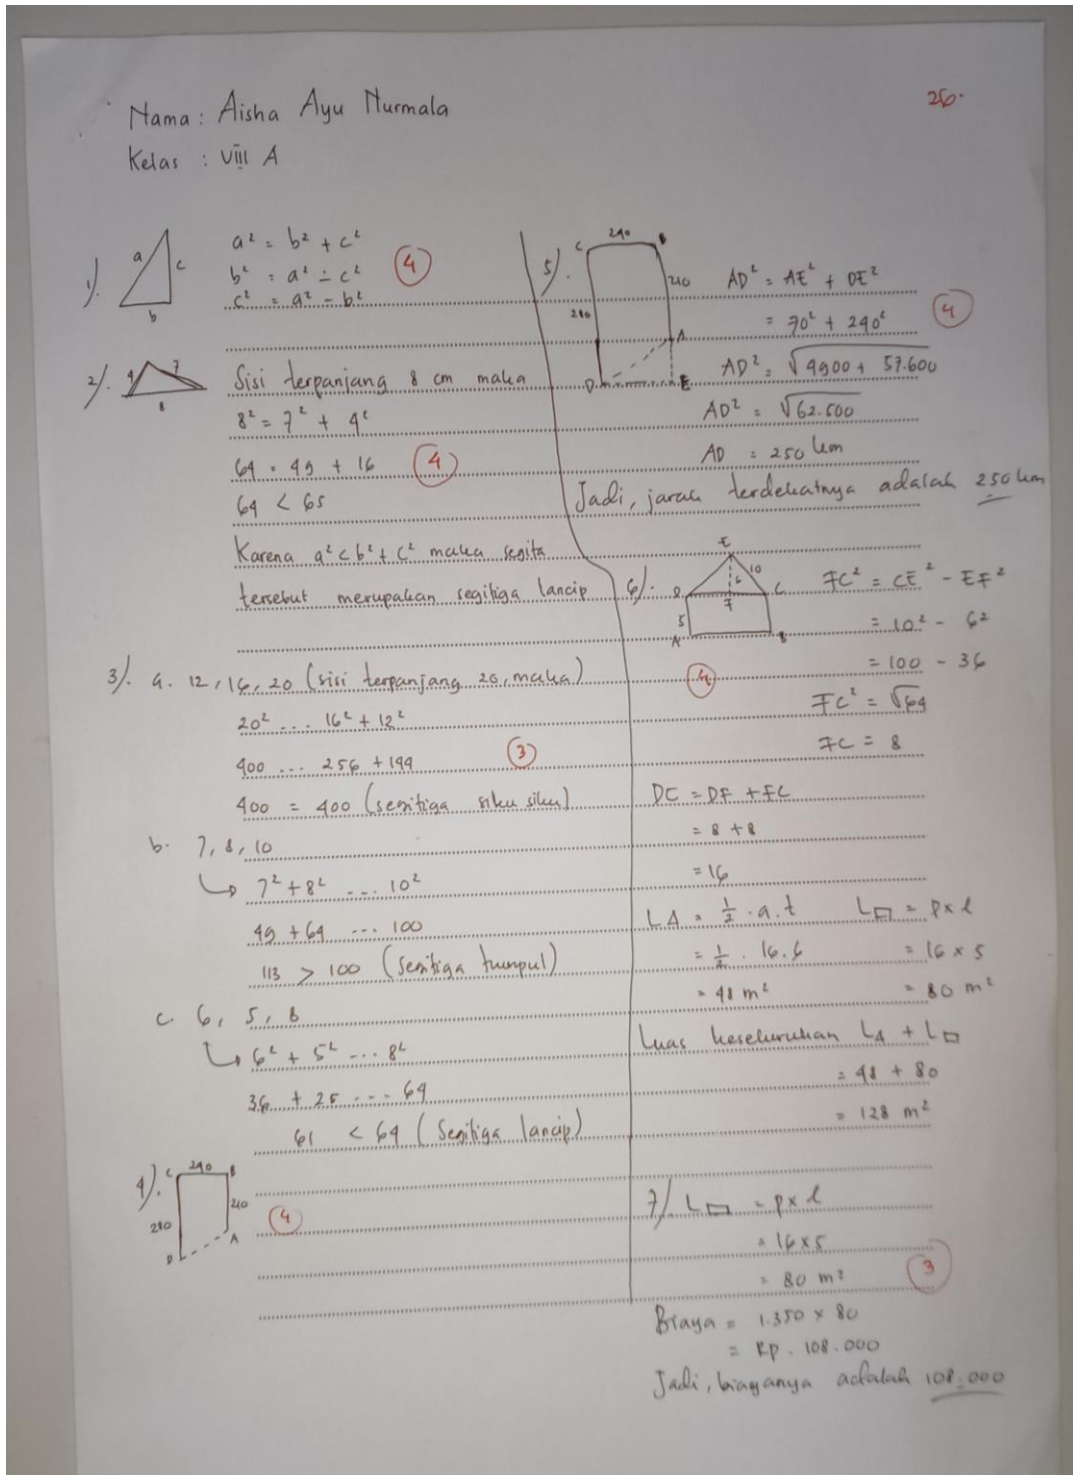 26.
Nama : Aisha Ayu Nurmala
Kelas : VIII A
1). a c b
a² = b² + c²
b² = a² - c²
c² = a² - b²
4
2). 4 7 8
Sisi terpanjang 8 cm maka
8² = 7² + 4²
64 = 49 + 16
4
64 < 65
Karena a² < b² + c² maka segita
tersebut merupakan segitiga lancip
3). a. 12, 16, 20 (sisi terpanjang 20, maka)
20² .... 16² + 12²
400 ... 256 + 144
3
400 = 400 (segitiga siku siku)
b. 7, 8, 10
↳ 7² + 8² .... 10²
49 + 64 ... 100
113 > 100 (segitiga tumpul)
c. 6, 5, 8
↳ 6² + 5² ... 8²
36 + 25 .... 64
61 < 64 (Segitiga lancip)
4). C 240 B
280 210
D A
4
5). C 240 B
280 210
D A E
AD² = AE² + DE²
= 70² + 240²
4
AD² = √4900 + 57.600
AD² = √62.500
AD = 250 km
Jadi, jarak terdekatnya adalah 250 km
6). E 10 6
D F C
5
A B
FC² = CE² - EF²
= 10² - 6²
= 100 - 36
4
FC² = √64
FC = 8
DC = DF + FC
= 8 + 8
= 16
L△ = ½ . a . t L▭ = p x l
= ½ . 16 . 6 = 16 x 5
= 48 m² = 80 m²
Luas keseluruhan L△ + L▭
= 48 + 80
= 128 m²
7/ L▭ = p x l
= 16 x 5
= 80 m²
3
Biaya = 1.350 x 80
= Rp. 108.000
Jadi, biayanya adalah 108.000